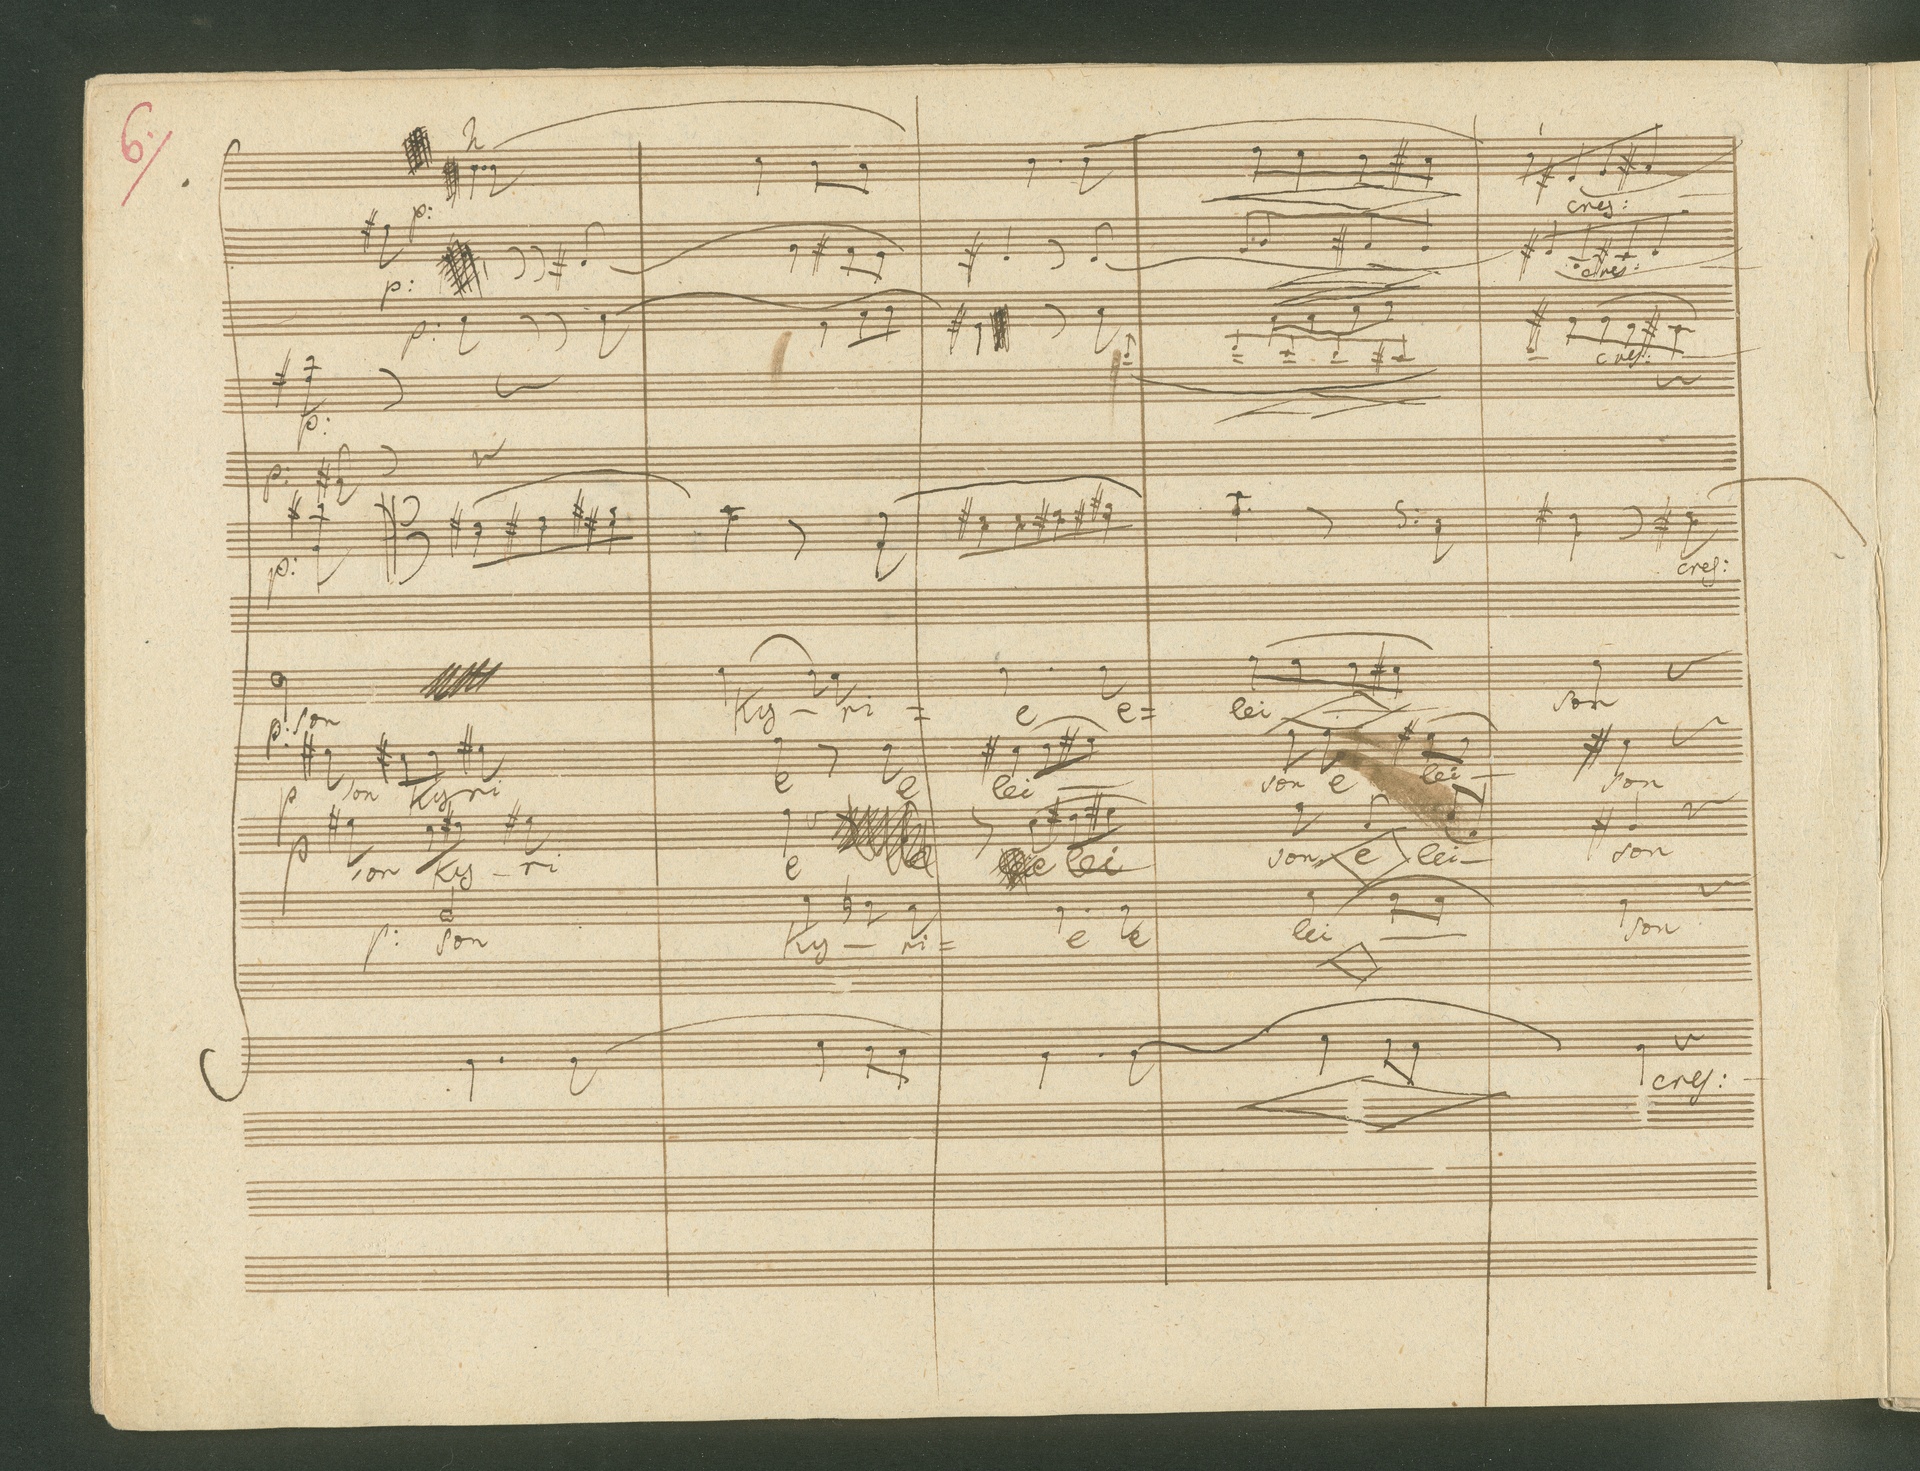 6.
p:
cres:
p:
cres:
p:
cres:
p:
p:
p: S: cres:
Ky – ri = e e= lei son
p: son
e e lei son e lei – son
p son Ky ri
e e e lei son e lei – son
p son Ky – ri
Ky – ri = e e lei son
p: son
cres: